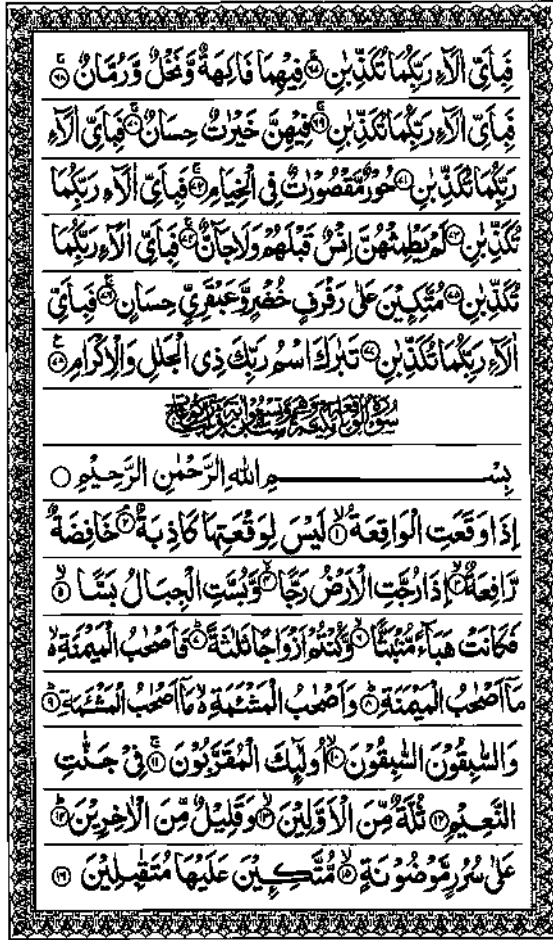 فَبِاَىِّ اٰلَآءِ رَبِّكُمَا تُكَذِّبٰنِ ﴿۶۷﴾ فِيۡهِمَا فَاكِهَةٌ وَّنَخۡلٌ وَّرُمَّانٌ ﴿۶۸﴾
فَبِاَىِّ اٰلَآءِ رَبِّكُمَا تُكَذِّبٰنِ ﴿۶۹﴾ فِيۡهِنَّ خَيۡرٰتٌ حِسَانٌ ﴿۷۰﴾ فَبِاَىِّ اٰلَآءِ
رَبِّكُمَا تُكَذِّبٰنِ ﴿۷۱﴾ حُوۡرٌ مَّقۡصُوۡرٰتٌ فِى الۡخِيَامِ ﴿۷۲﴾ فَبِاَىِّ اٰلَآءِ رَبِّكُمَا
تُكَذِّبٰنِ ﴿۷۳﴾ لَمۡ يَطۡمِثۡهُنَّ اِنۡسٌ قَبۡلَهُمۡ وَلَا جَآنٌّ ﴿۷۴﴾ فَبِاَىِّ اٰلَآءِ رَبِّكُمَا
تُكَذِّبٰنِ ﴿۷۵﴾ مُتَّكِـِٕيۡنَ عَلٰى رَفۡرَفٍ خُضۡرٍ وَّعَبۡقَرِىٍّ حِسَانٍ ﴿۷۶﴾ فَبِاَىِّ
اٰلَآءِ رَبِّكُمَا تُكَذِّبٰنِ ﴿۷۷﴾ تَبٰرَكَ اسۡمُ رَبِّكَ ذِى الۡجَلٰلِ وَالۡاِكۡرَامِ ﴿۷۸﴾
بِسۡمِ اللهِ الرَّحۡمٰنِ الرَّحِيۡمِ
اِذَا وَقَعَتِ الۡوَاقِعَةُ ﴿۱﴾ لَيۡسَ لِوَقۡعَتِهَا كَاذِبَةٌ ﴿۲﴾ خَافِضَةٌ
رَّافِعَةٌ ﴿۳﴾ اِذَا رُجَّتِ الۡاَرۡضُ رَجًّا ﴿۴﴾ وَّبُسَّتِ الۡجِبَالُ بَسًّا ﴿۵﴾
فَكَانَتۡ هَبَآءً مُّنۡۢبَثًّا ﴿۶﴾ وَّكُنۡتُمۡ اَزۡوَاجًا ثَلٰثَةً ﴿۷﴾ فَاَصۡحٰبُ الۡمَيۡمَنَةِ
مَاۤ اَصۡحٰبُ الۡمَيۡمَنَةِ ﴿۸﴾ وَاَصۡحٰبُ الۡمَشۡـَٔمَةِ مَاۤ اَصۡحٰبُ الۡمَشۡـَٔمَةِ ﴿۹﴾
وَالسّٰبِقُوۡنَ السّٰبِقُوۡنَ ﴿۱۰﴾ اُولٰٓئِكَ الۡمُقَرَّبُوۡنَ ﴿۱۱﴾ فِىۡ جَنّٰتِ
النَّعِيۡمِ ﴿۱۲﴾ ثُلَّةٌ مِّنَ الۡاَوَّلِيۡنَ ﴿۱۳﴾ وَقَلِيۡلٌ مِّنَ الۡاٰخِرِيۡنَ ﴿۱۴﴾
عَلٰى سُرُرٍ مَّوۡضُوۡنَةٍ ﴿۱۵﴾ مُّتَّكِـِٕيۡنَ عَلَيۡهَا مُتَقٰبِلِيۡنَ ﴿۱۶﴾